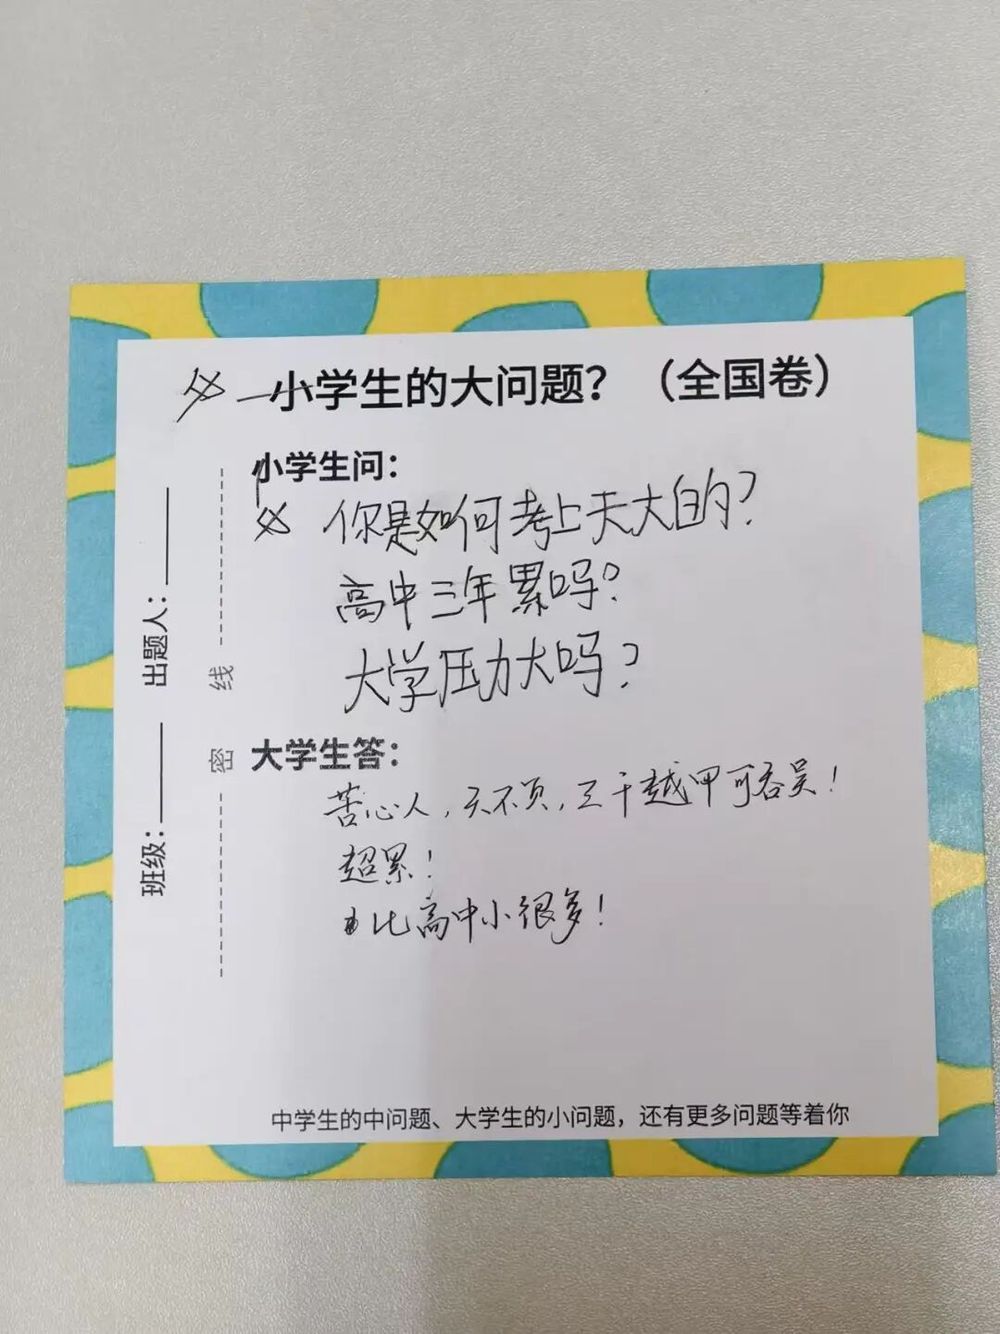 小学生的大问题？（全国卷）
小学生问：
你是如何考上天大的？
高中三年累吗？
大学压力大吗？
大学生答：
苦心人，天不负，三千越甲可吞吴！
超累！
比高中小很多！
班级：
出题人：
密
线
中学生的中问题、大学生的小问题，还有更多问题等着你